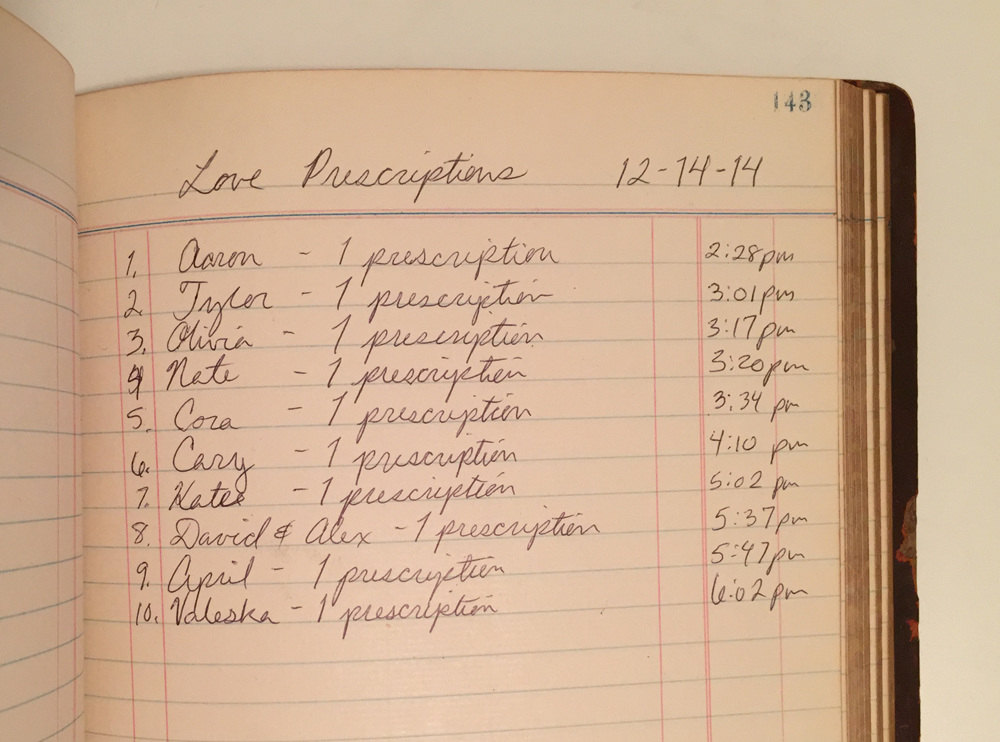 143
Love Prescriptions 12-14-14
1. Aaron - 1 prescription 2:28pm
2. Tyler - 1 prescription 3:01pm
3. Olivia - 1 prescription 3:17pm
4 Nate - 1 prescription 3:20pm
5. Cora - 1 prescription 3:34 pm
6. Cary - 1 prescription 4:10 pm
7. Katee - 1 prescription 5:02 pm
8. David & Alex - 1 prescription 5:37pm
9. April - 1 prescription 5:47pm
10. Valeska - 1 prescription 6:02pm